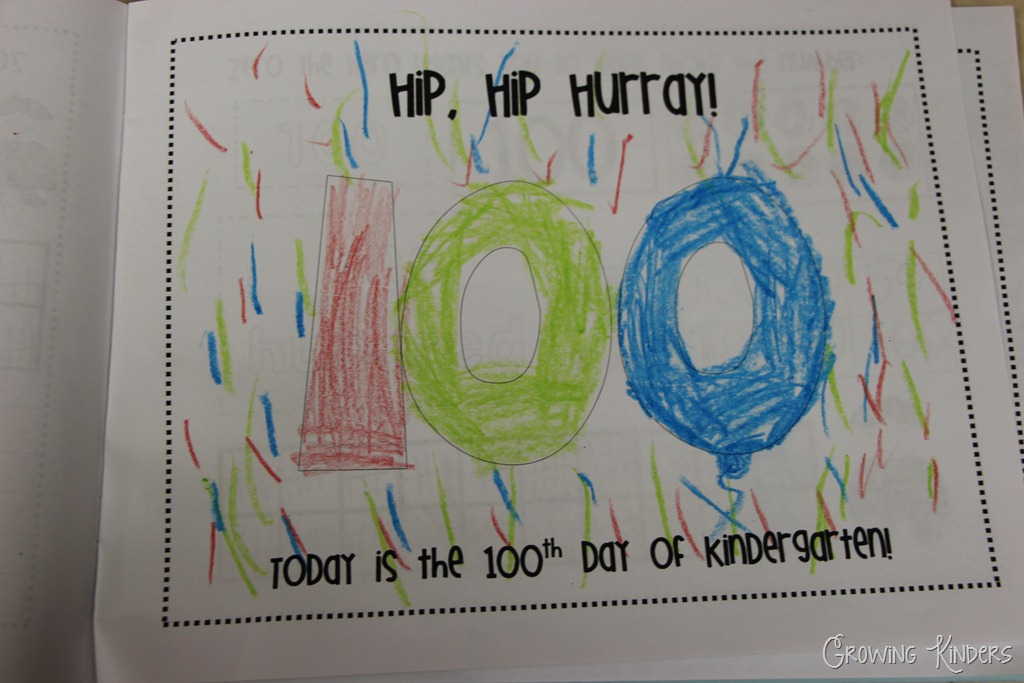 Hip, Hip Hurray!
100
Today is the 100th Day of Kindergarten!
Growing Kinders